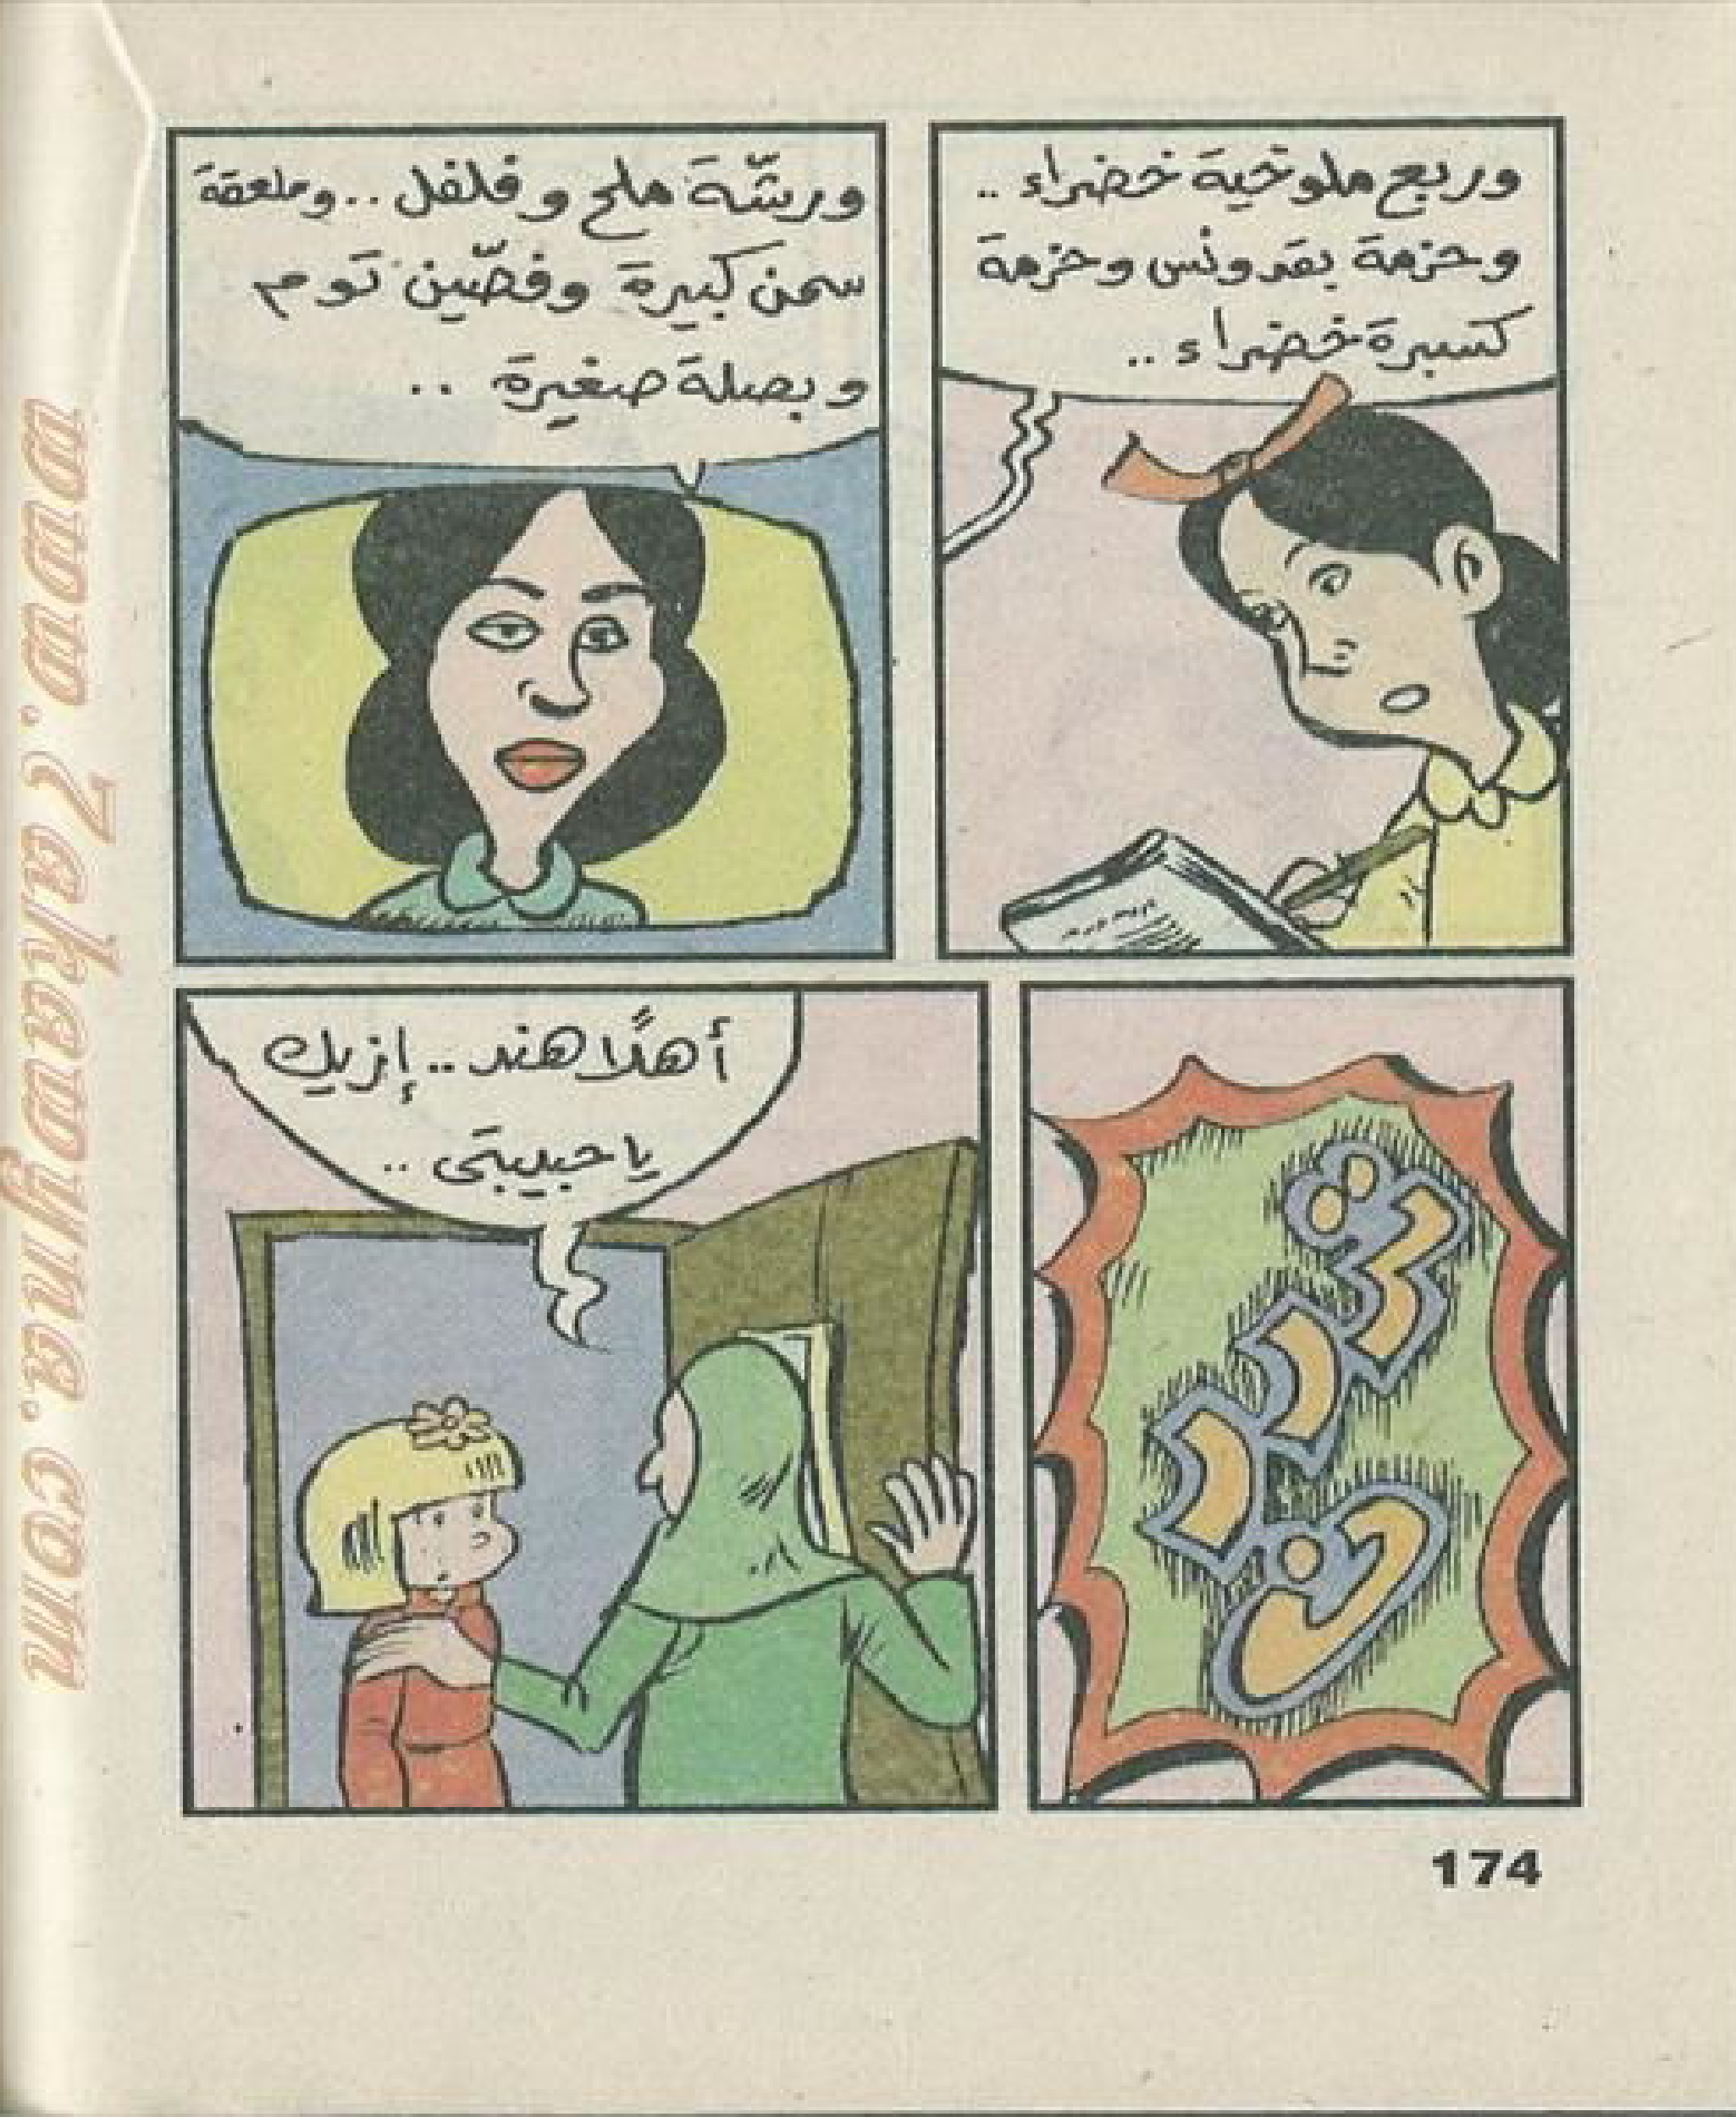 وربع ملوخية خضراء ..
وحزمة بقدونس وحزمة
كسبرة خضراء ..
ورشّة ملح وفلفل .. وملعقة
سمن كبيرة وفصّين توم
وبصلة صغيرة ..
ترررن
أهلًا هند .. إزيك
يا حبيبتى ..
174
www.7akawyna.com